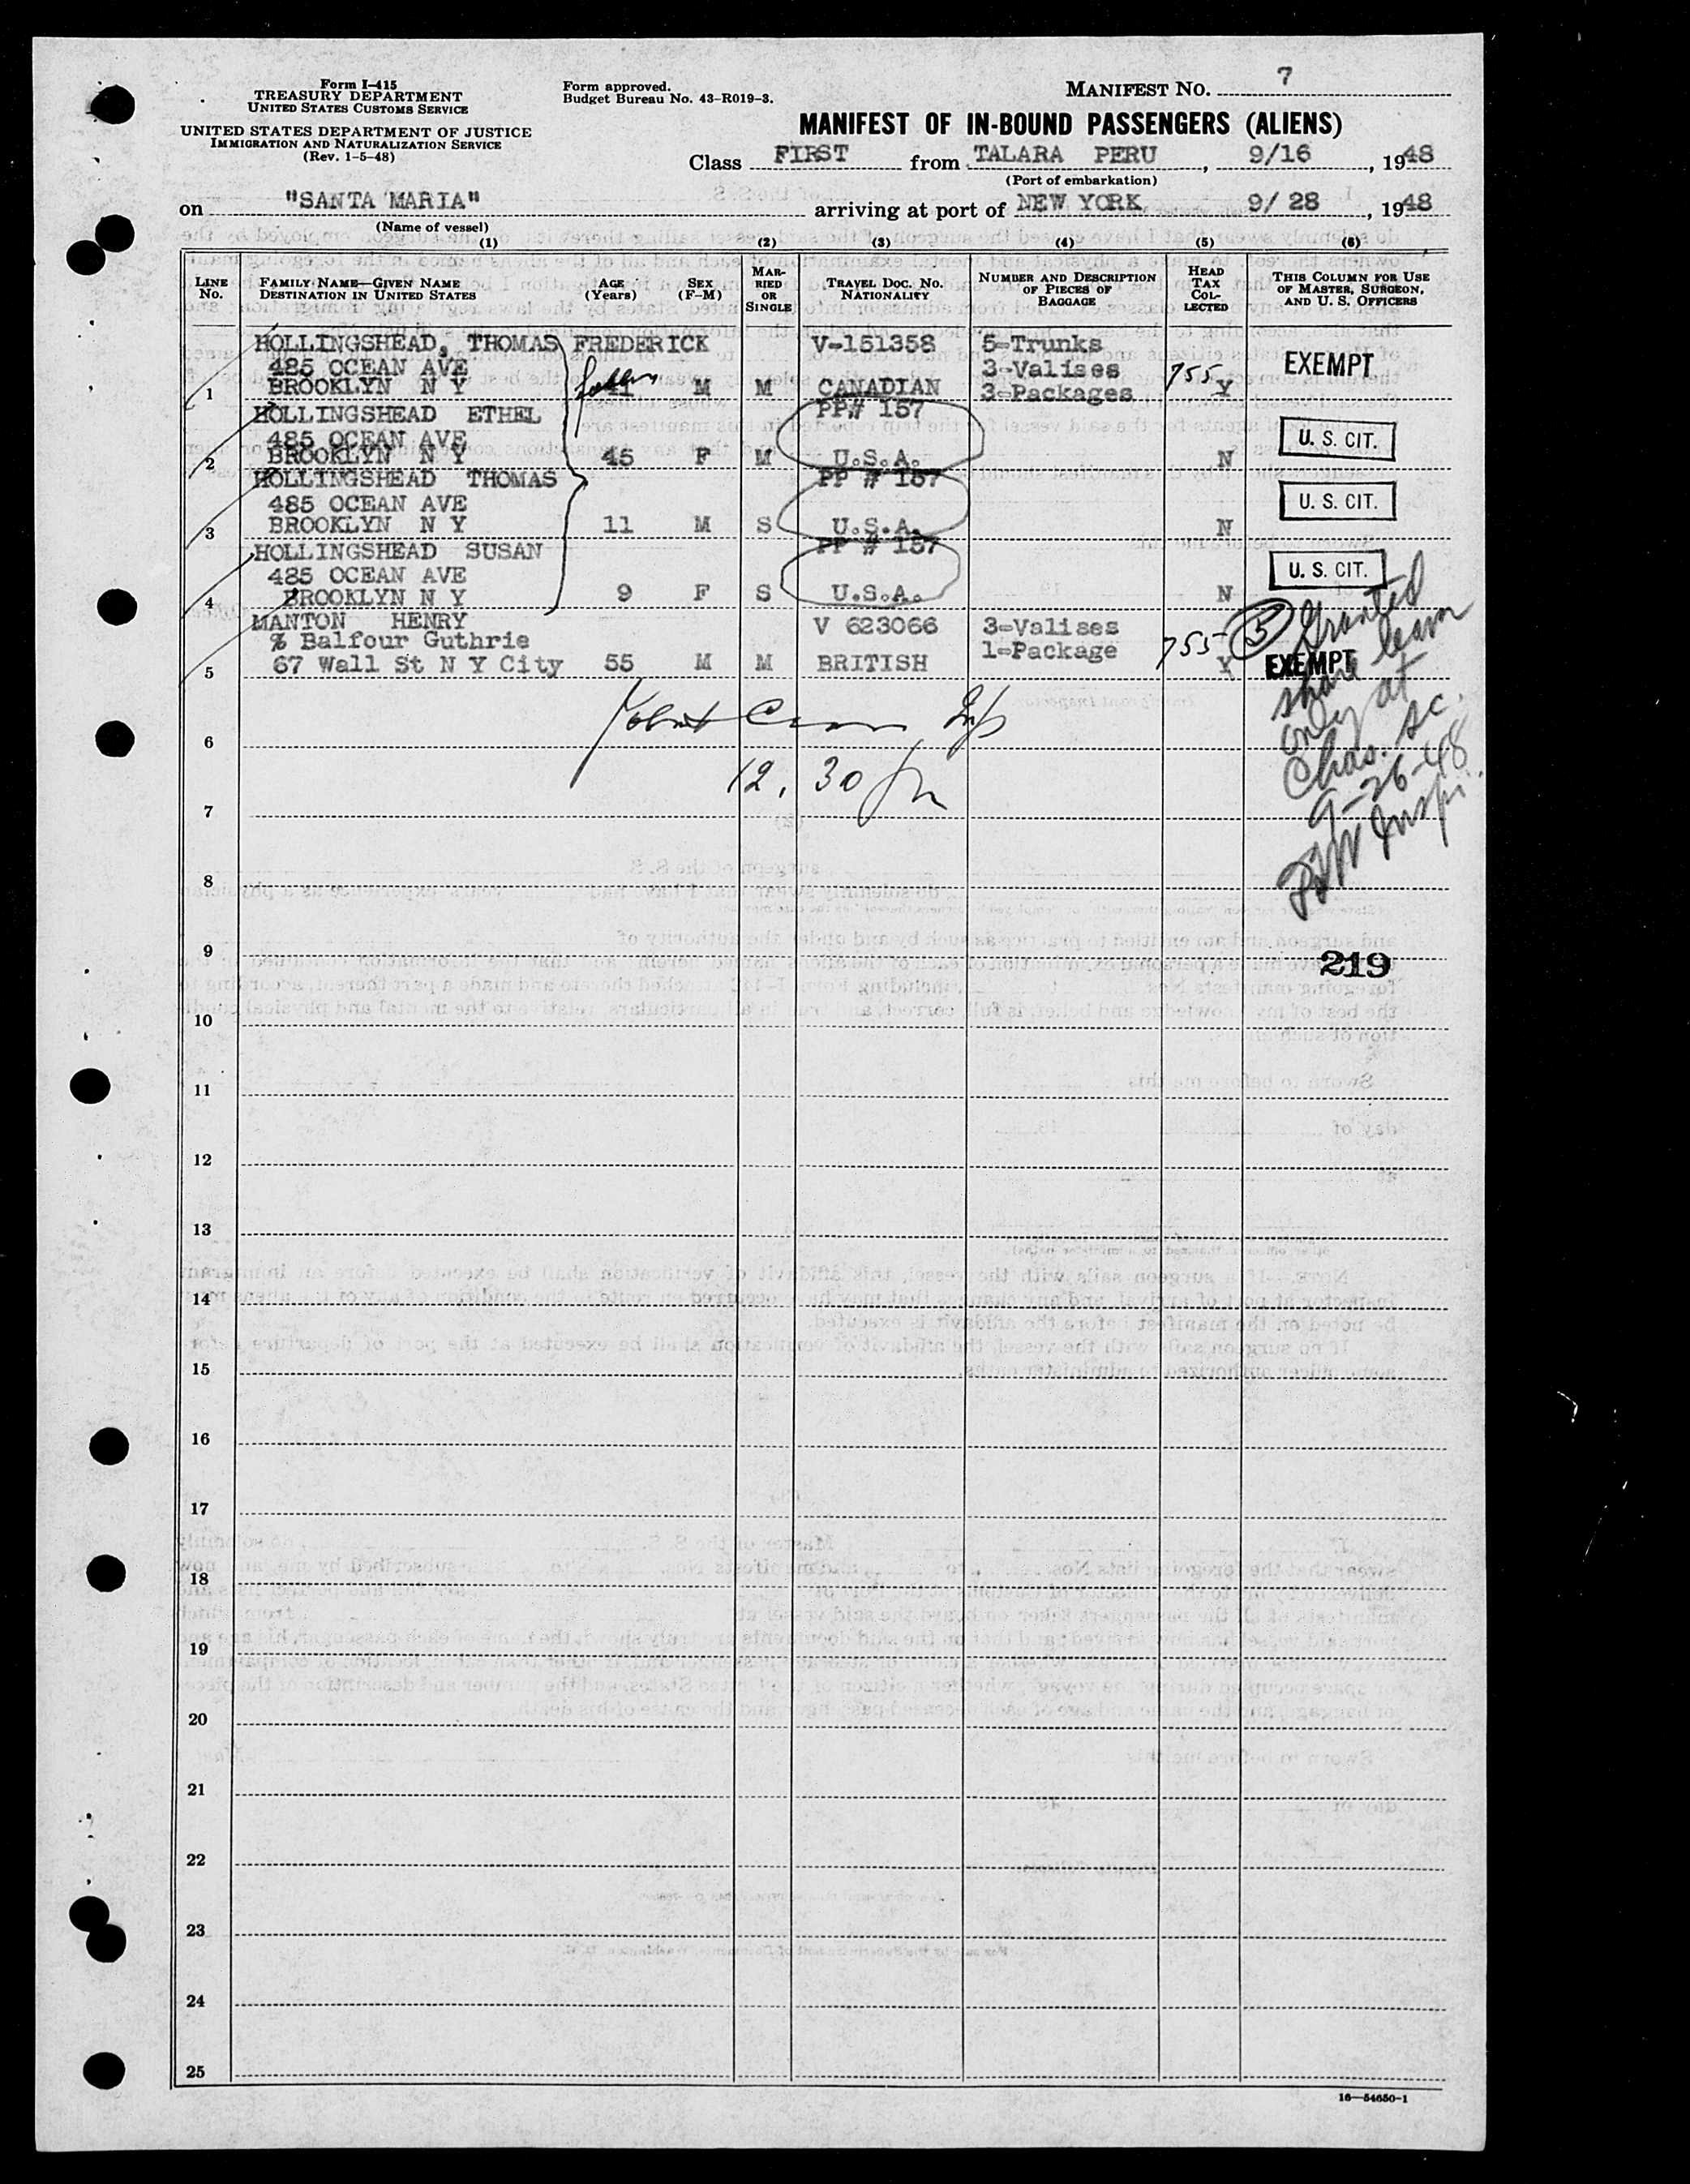 Form I-415
TREASURY DEPARTMENT
UNITED STATES CUSTOMS SERVICE
UNITED STATES DEPARTMENT OF JUSTICE
IMMIGRATION AND NATURALIZATION SERVICE
(Rev. 1-5-48)
Form approved.
Budget Bureau No. 43-R019-3.
MANIFEST NO. 7
MANIFEST OF IN-BOUND PASSENGERS (ALIENS)
Class FIRST from TALARA PERU, 9/16, 1948
(Port of embarkation)
on "SANTA MARIA" arriving at port of NEW YORK 9/28, 1948
(Name of vessel)
(1) (2) (3) (4) (5) (6)
LINE No. FAMILY NAME—GIVEN NAME DESTINATION IN UNITED STATES AGE (Years) SEX (F-M) MARRIED OR SINGLE TRAVEL DOC. NO. NATIONALITY NUMBER AND DESCRIPTION OF PIECES OF BAGGAGE HEAD TAX COLLECTED THIS COLUMN FOR USE OF MASTER, SURGEON, AND U. S. OFFICERS
HOLLINGSHEAD, THOMAS FREDERICK V-151358 5-Trunks
485 OCEAN AVE 3-Valises EXEMPT
1 BROOKLYN N Y 41 M M CANADIAN 3-Packages 755 Y
HOLLINGSHEAD ETHEL PP# 157
485 OCEAN AVE U. S. CIT.
2 BROOKLYN N Y 45 F M U.S.A. N
HOLLINGSHEAD THOMAS PP # 157
485 OCEAN AVE U. S. CIT.
3 BROOKLYN N Y 11 M S U.S.A. N
HOLLINGSHEAD SUSAN PP # 157
485 OCEAN AVE U. S. CIT.
4 BROOKLYN N Y 9 F S U.S.A. N
MANTON HENRY V 623066 3-Valises
% Balfour Guthrie 1-Package 755 5
5 67 Wall St N Y City 55 M M BRITISH Y EXEMPT
Granted
shore leave
only at
Chas. SC.
9-26-48
Insp.
6
12.30
7
8
9
219
10
11
12
13
14
15
16
17
18
19
20
21
22
23
24
25
16—54650-1